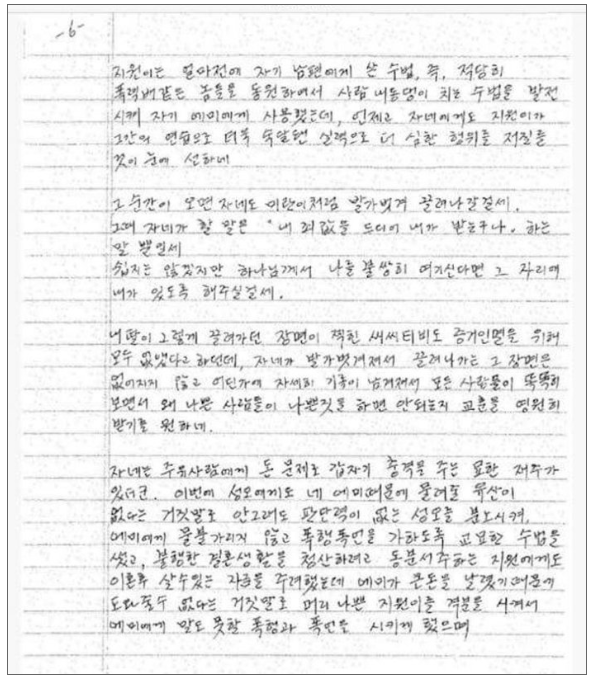 -6-
지원이는 얼마전에 자기 남편에게 쓴 수법, 즉, 적당히
폭력배같은 놈들을 동원하여서 사람 내동댕이 치는 수법을 발전
시켜 자기 에미에게 사용했는데, 언제고 자네에게도 지원이가
그간의 연습으로 더욱 숙달된 실력으로 더 심한 행위를 저질를
것이 눈에 선하네
그 순간이 오면 자네도 미란이처럼 발가벗겨 끌려나갈걸세.
그때 자네가 할 말은 "내 죄값을 드디어 내가 받는구나. 하는
말 뿐일세
쉽지는 않겠지만 하나님께서 나를 불쌍히 여기신다면 그 자리에
내가 있도록 해주실걸세.
내딸이 그렇게 끌려가던 장면이 찍힌 씨씨티비도 증거인멸을 위해
모두 없앴다고 하던데, 자네가 발가벗겨져서 끌려나가는 그 장면은
없어지지 않고 어딘가에 자세히 기록이 남겨져서 모든 사람들이 똑똑히
보면서 왜 나쁜 사람들이 나쁜짓을 하면 안되는지 교훈을 영원히
받기를 원하네.
자네는 주위사람에게 돈 문제로 갑자기 충격을 주는 묘한 재주가
있더군. 이번에 성오에게도 네 에미때문에 물려줄 유산이
없다는 거짓말로 안그래도 판단력이 없는 성오를 분노시켜,
에미에게 물불가리지 않고 폭행폭언을 가하도록 교묘한 수법을
썼고, 불행한 결혼생활을 청산하려고 동분서주하는 지원에게도
이혼후 살수있는 자금을 주려했는데 에미가 큰돈을 날렸기때문에
도와줄수 없다는 거짓말로 머리 나쁜 지원이를 격분을 시켜서
에미에게 말도 못할 폭행과 폭언을 시키게 했으며